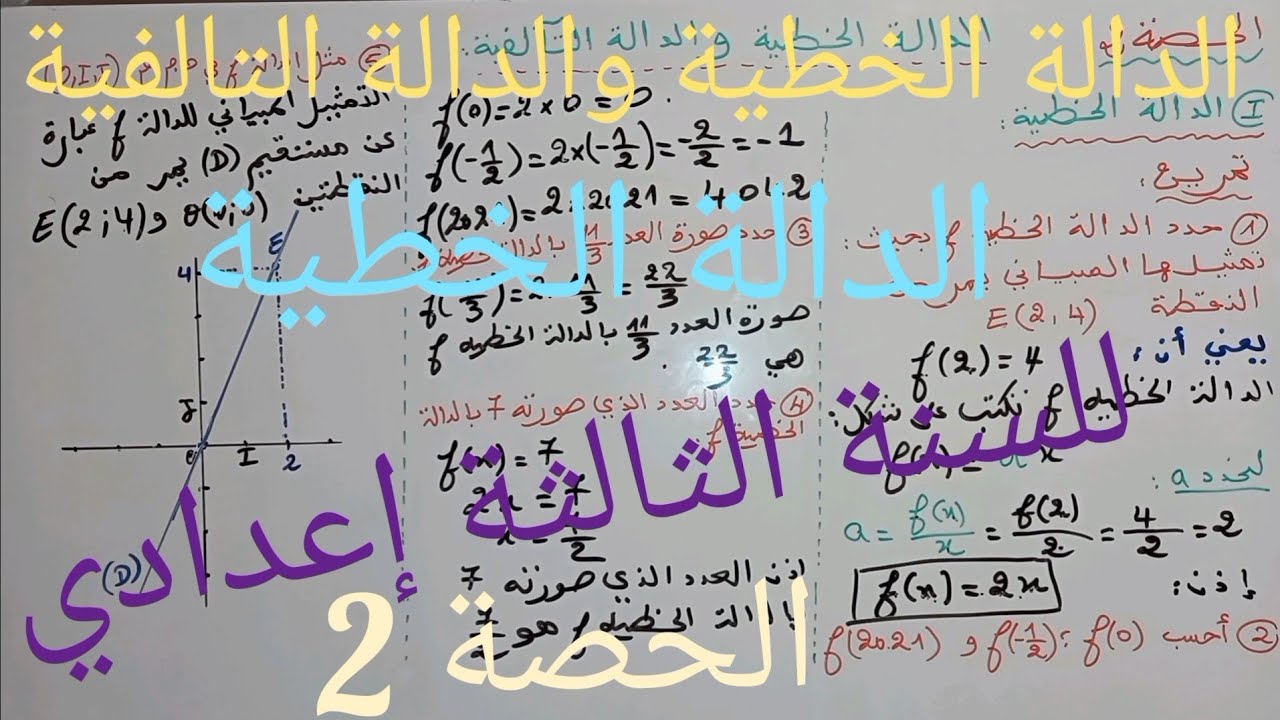 الدالة الخطية والدالة التالفية
الدالة الخطية
للسنة الثالثة إعدادي
الحصة 2
الحصة
الدالة الخطية والدالة التآلفية:
I الدالة الخطية:
تمرين:
1 حدد الدالة الخطية f بحيث:
تمثيلها المبياني يمر من
النقطة E(2,4)
يعني أن: f(2) = 4
الدالة الخطية f تكتب على شكل:
لنحدد a:
a = f(x)/x = f(2)/2 = 4/2 = 2
إذن: f(x) = 2x
2 أحسب f(0) ; f(-1/2) و f(2021)
f(0) = 2 × 0 = 0.
f(-1/2) = 2×(-1/2) = -2/2 = -1
f(2021) = 2×2021 = 4042
3 حدد صورة العدد 11/3 بالدالة
= 22/3
صورة العدد 11/3 بالدالة الخطية f
هي 22/3 .
4 حدد العدد الذي صورته 7 بالدالة
الخطية f
f(x) = 7
2x = 7
إذن العدد الذي صورته 7
بالدالة الخطية f هو 7/2
5 مثل
التمثيل المبياني للدالة f عبارة
عن مستقيم (D) يمر من
النقطتين O(0;0) و E(2;4)
E
4
J
O
I
2
(D)